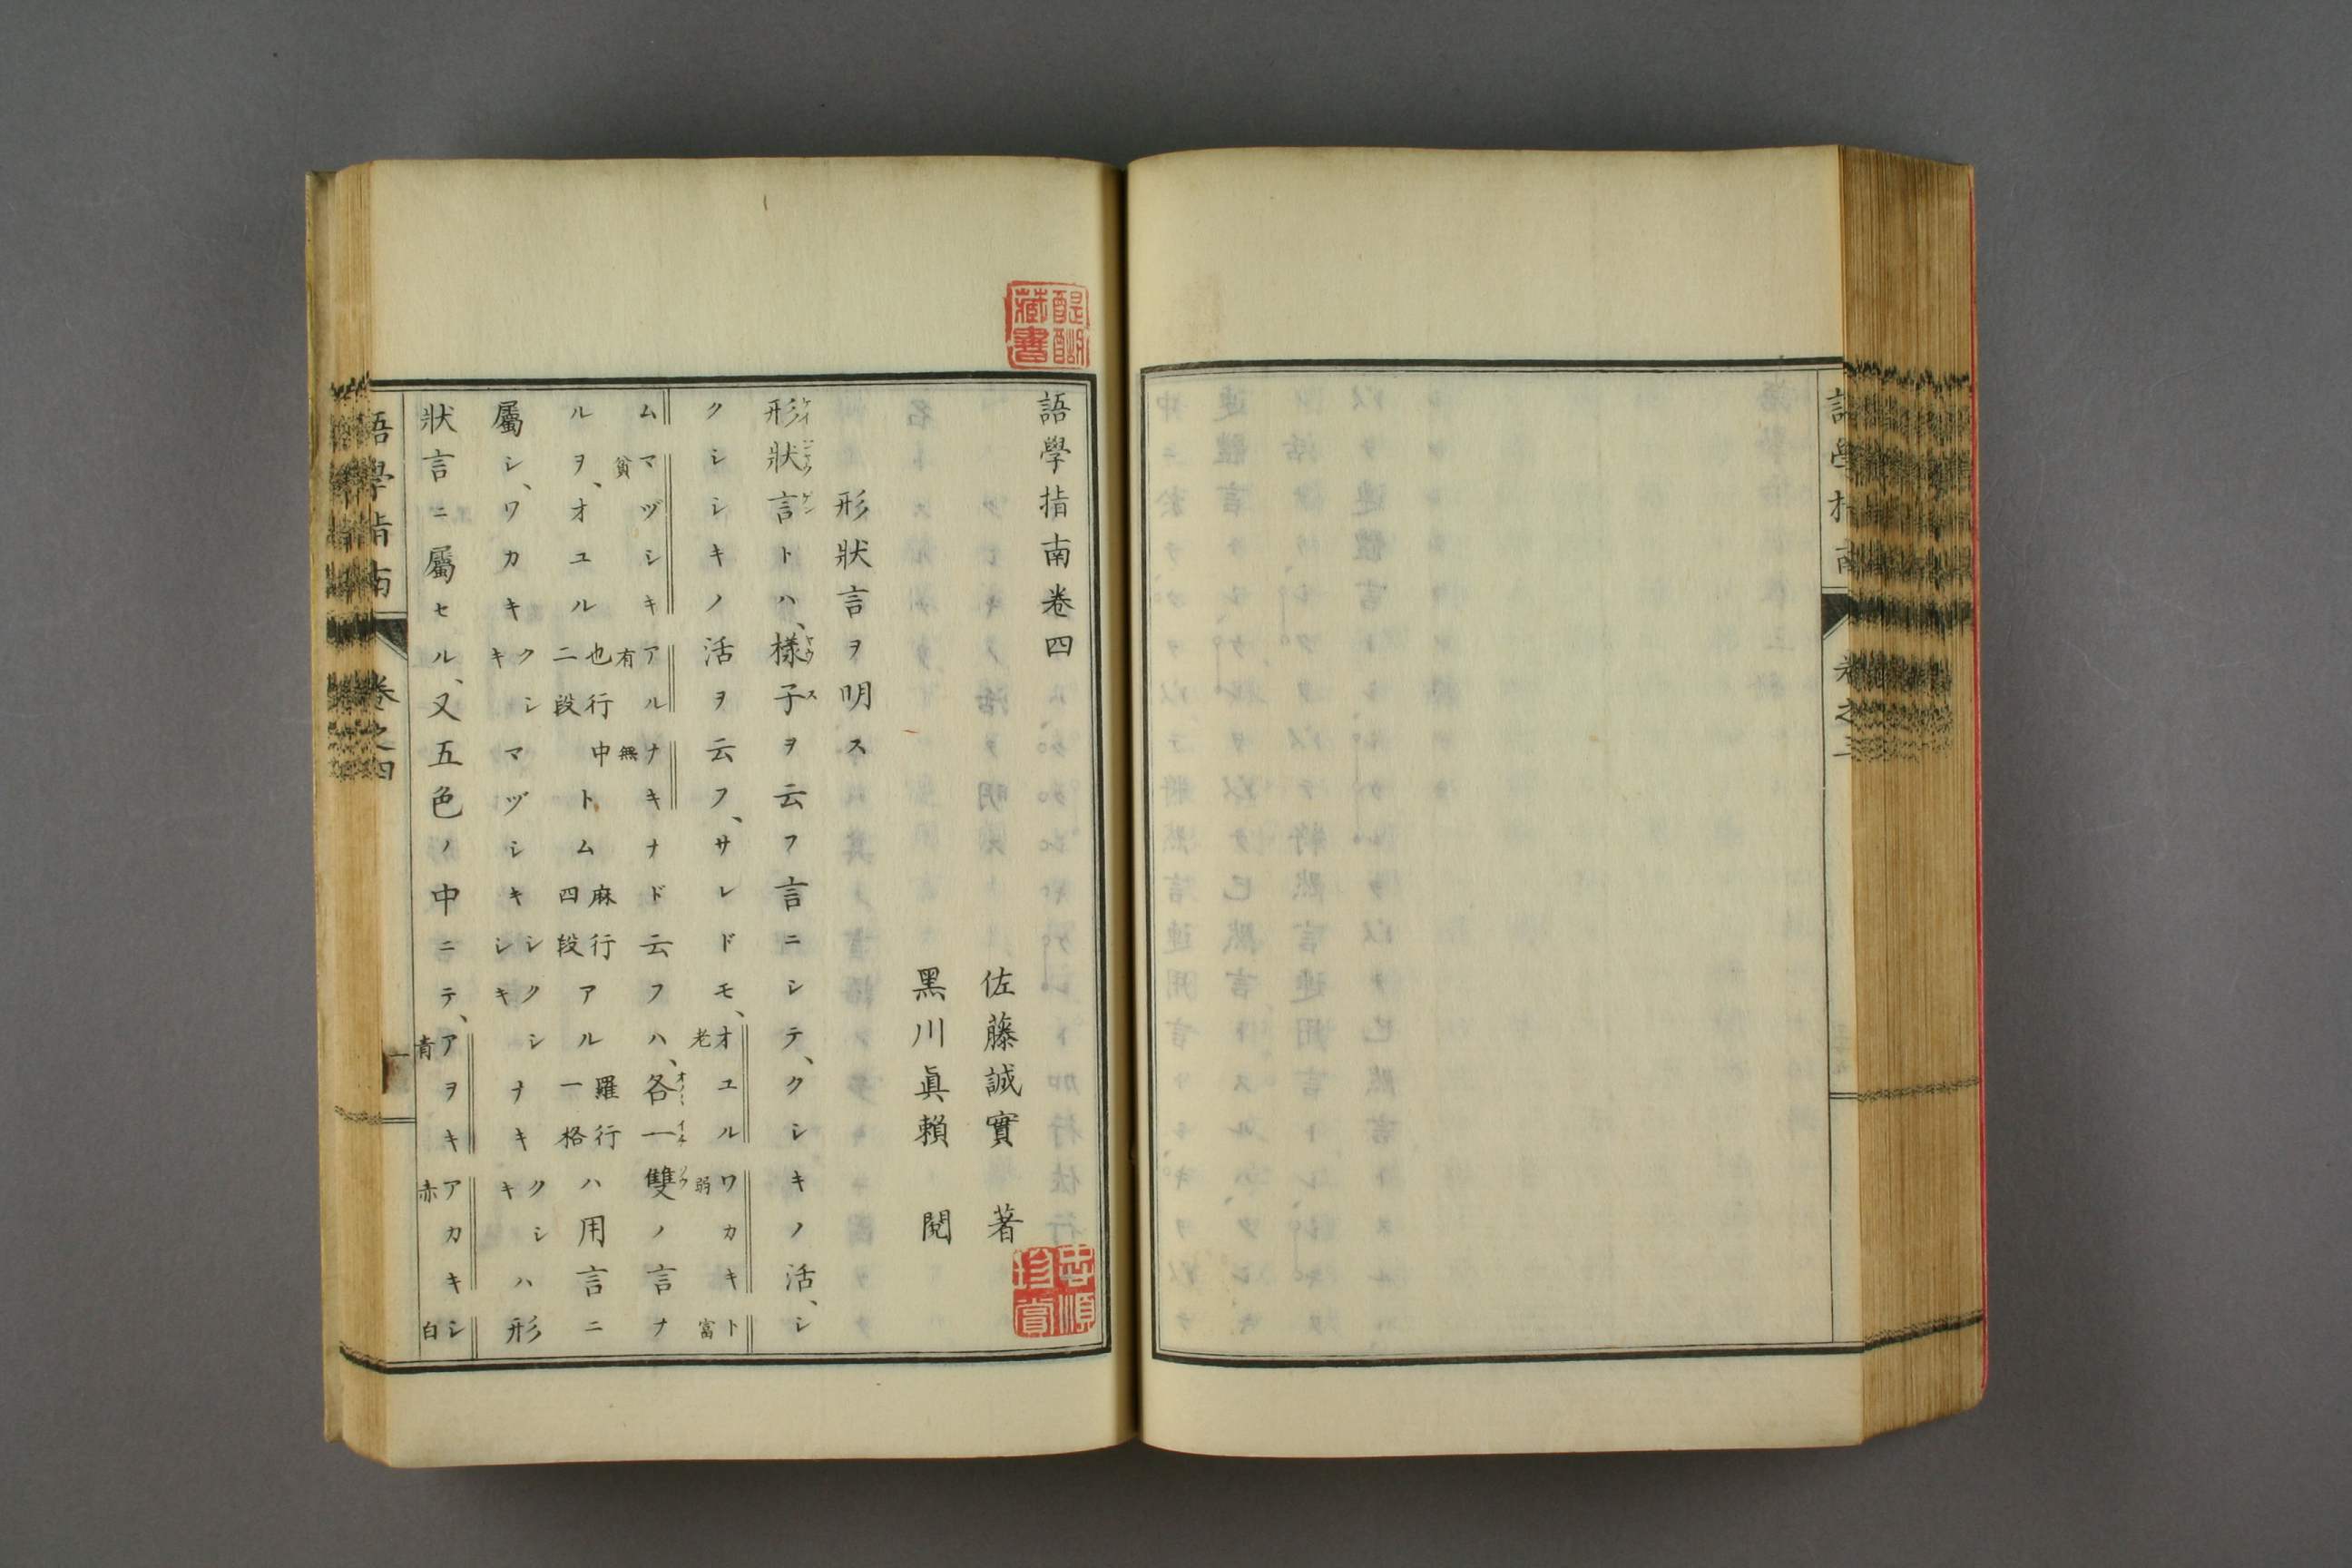 語學指南
卷之三
語學指南卷四
佐藤誠實 著
黑川眞賴 閱
形狀言ヲ明ス
形狀言トハ、樣子ヲ云フ言ニシテ、クシキノ活、シ
クシシキノ活ヲ云フ、サレドモ、オユル老ワカキ弱ト富
ムマヅシキ貧アル有ナキ無ナド云フハ、各一雙ノ言ナ
ルヲ、オユル也行中二段トム麻行四段アル羅行一格ハ用言ニ
屬シ、ワカキクシキマヅシキシクシシキナキクシキハ形
狀言ニ屬セル、又五色ノ中ニテ、アヲキ青アカキ赤シ白
語學指南
卷之四
一
醍醐藏書
忠順珍賞